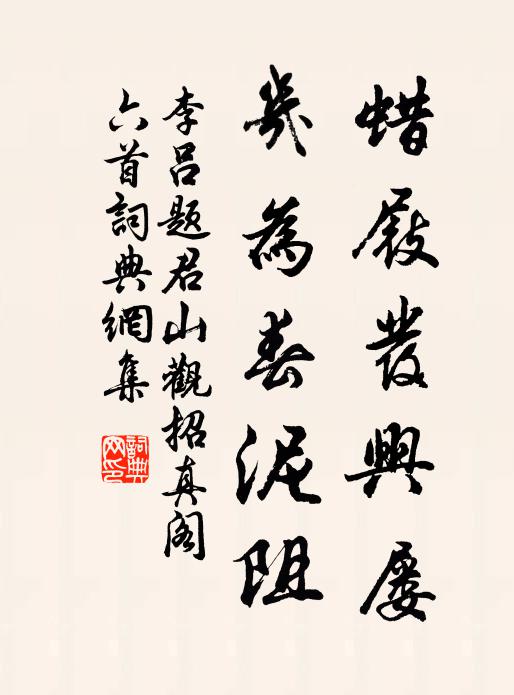 蜡屐發興屢
幾為春泥阻
李呂題君山觀招真阁
六首詞典網集
詞典网印